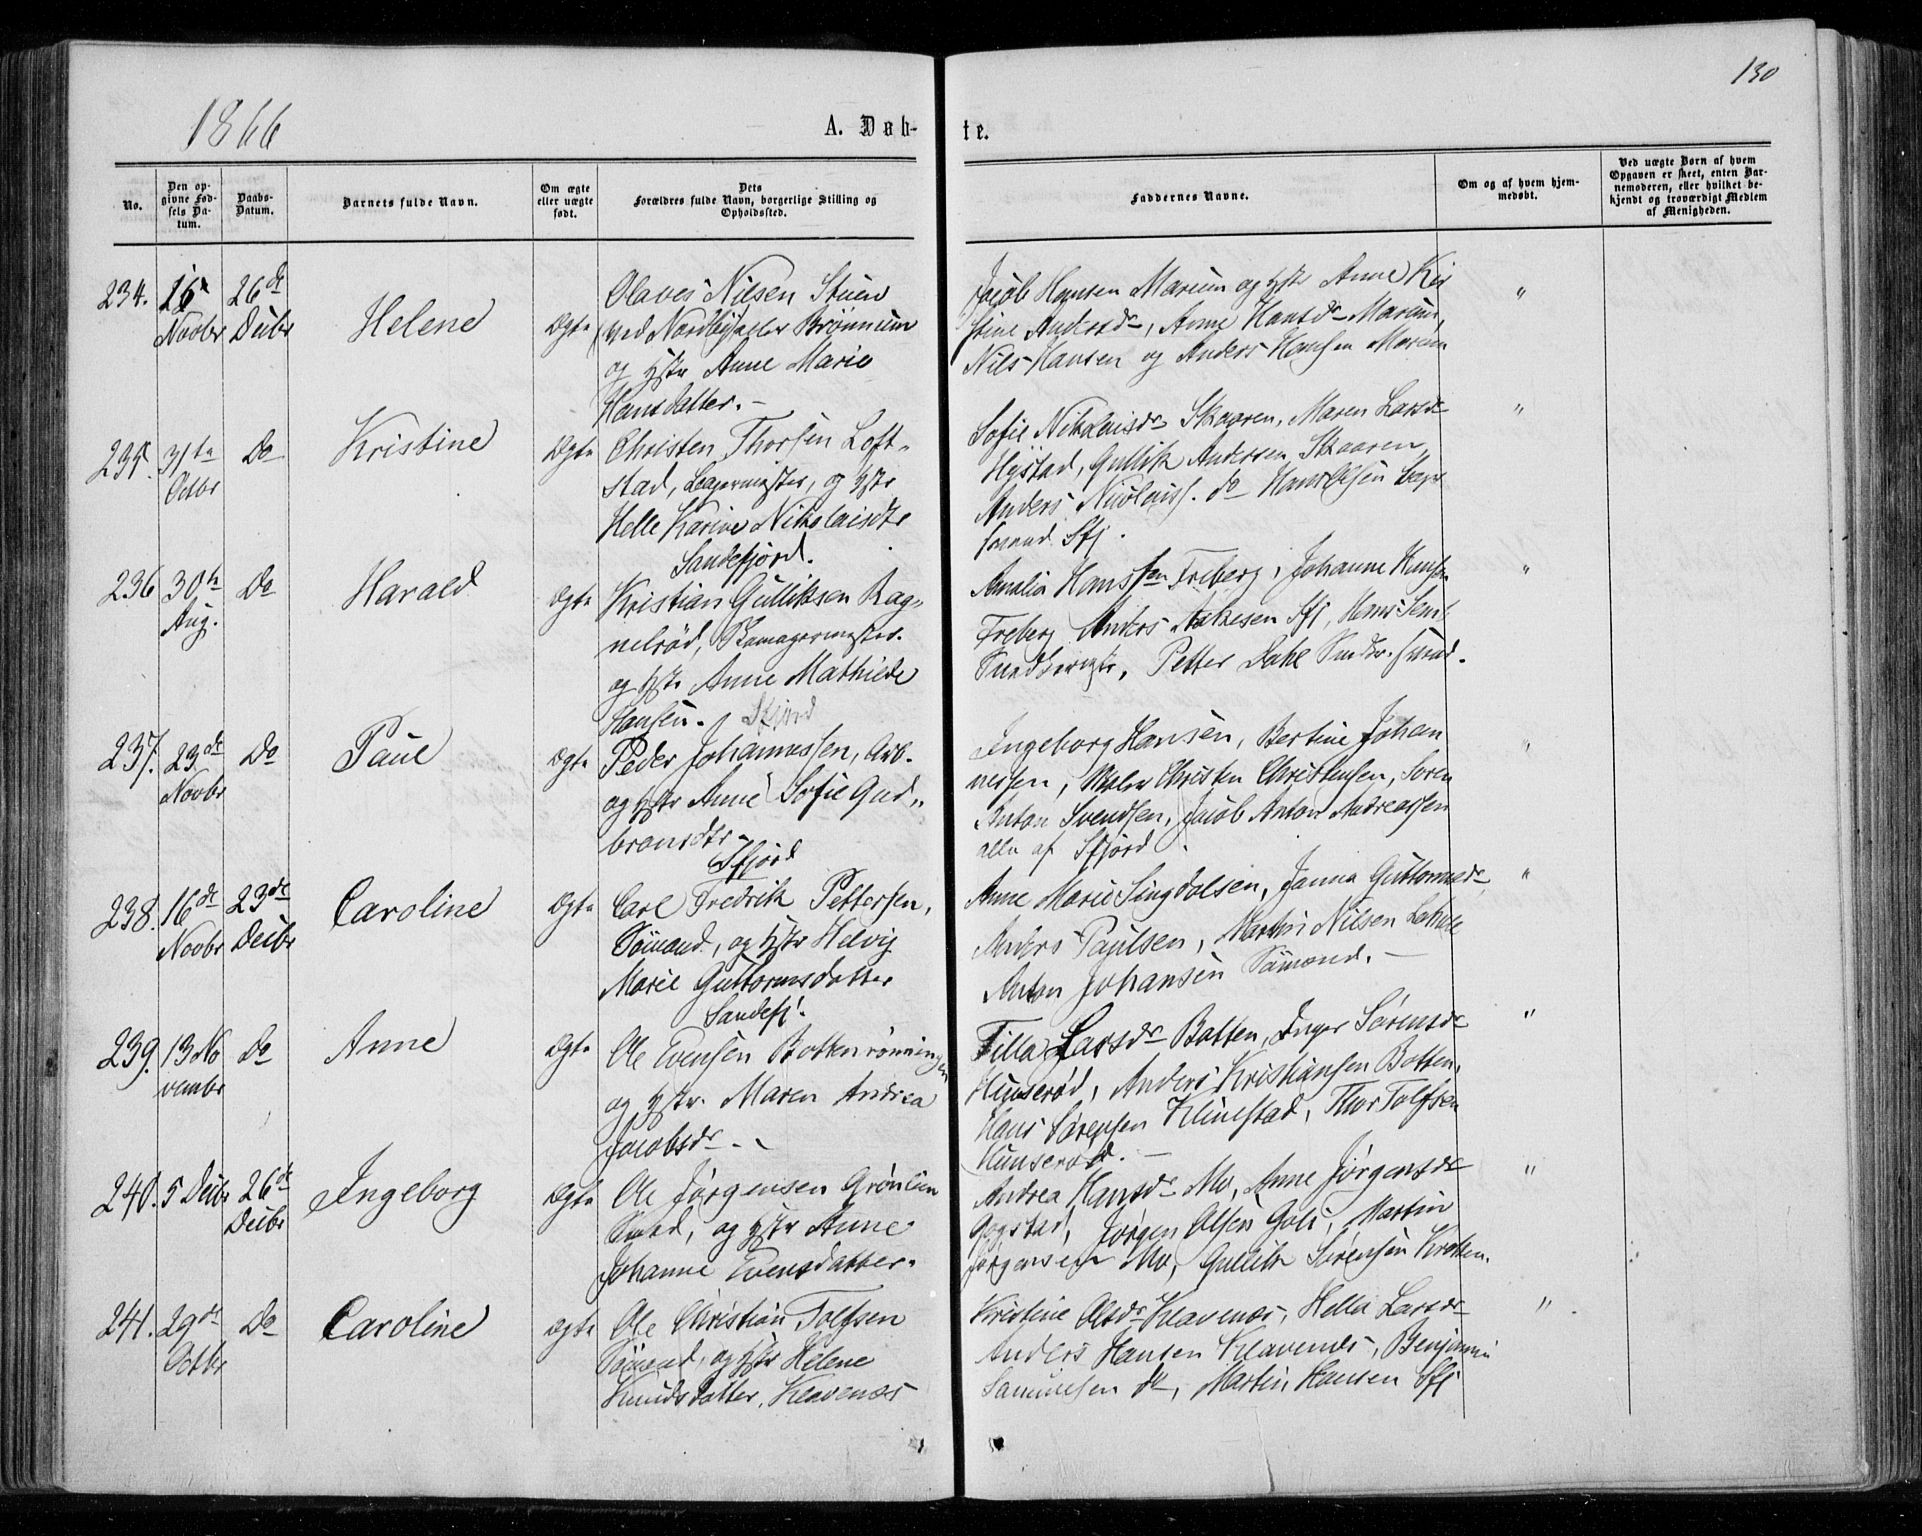 130
1866
A. Døb-
te.
No.
Den op-
givne Fød-
sels Da-
tum.
Daabs-
Datum.
Barnets fulde Navn.
Om ægte
eller uægte
født.
Dets
Forældres fulde Navn, borgerlige Stilling og
Opholdssted.
Faddernes Navne.
Om og af hvem hjem-
medøbt.
Ved uægte Børn af hvem
Opgaven er skeet, enten Bar-
nemoderen, eller hvilket be-
kjendt og troværdigt Medlem
af Menigheden.
234.
Novbr
26de
Decbr
Helene
Ægte
Olaves Nilsen Stuen
ved Brönnum
og Hstr Anne Marie
Hansdatter.-
Jacob Hansen Marum og Hstr Anne Kir
stine Andersdr, Anne Hansdr Marum,
Nils Hansen og Anders Hansen Marum
"
235.
31te
Octbr
Do
Kristine
Ægte
Christen Thorsen Loft-
stad, Bagermester, og Hstr
Helle Karine Nikolaisdtr
Sandefjord.
Sofie Nikolaisdr Skaaren, Maren Larsdr
Hystad, Gullik Andersen Skaaren,
Anders Nicolaiss. do Hans Olsen
Sfj.
"
236
30te
Aug.
Do
Harald
Ægte
Kristian Gulliksen Rag-
nelröd, Skomagermester.
og Hstr Anne Mathilde
Hansen. Sfjord
Amalia Hanssen Freberg, Johanne Hansen
Freberg, Anders Sfj, Hans
Petter Dahl
"
237.
23de
Novbr
Do
Paul
Ægte
Peder Johannessen, Arb.
og Hstr Anne Sofie Gud-
bransdtr
Sfjord
Ingeborg Hansen, Bertine Johan
nessen, Christen Christensen, Soren
Anton Svendsen, Jacob Anton Andreassen
alle af Sfjord.
"
238.
16de
Novbr
23de
Decbr
Caroline
Ægte
Carl Fredrik Pettersen,
Sömand, og Hstr Helvig
Marie Guttormsdatter
Sandefj.
Anne Marie Lingdolsen, Janna Guttormsdr
Anders Paulsen, Martin Nilsen
Anton Johansen Sömand.-
"
239.
13 No
vembr
Do
Anne
Ægte
Ole Evensen Bottenrönning
en
og Hstr. Maren Andrea
Jacobsdr.-
Tilla Larsdr Botten, Inger Sörensdr
Hunseröd, Anders Kristiansen Botten,
Hans Sörensen Klinestad, Thor Tolfsen
Hunseröd.-
"
240.
5 Decbr
26de
Decbr
Ingeborg
Ægte
Ole Jörgensen Grönlien
og Hstr Anne
Johanne Evensdatter.
Andrea Hansdr Mo, Anne Jörgensdr
Gogstad, Jörgen Olsen Goli, Martin
Jörgensen Mo, Gullik Sörensen Krokken.
"
241.
29de
Octbr
Do
Caroline
Ægte
Ole Christian Tolfsen
Sömand, og Hstr Helene
Knudsdatter, Klavenæs
Kristine Olsdr Klavenæs, Helle Larsdr
Anders Hansen Klavenæs, Benjamin
Samuelsen do, Martin Hansen Sfj
"